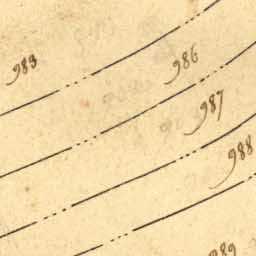 983
986
987
988
989